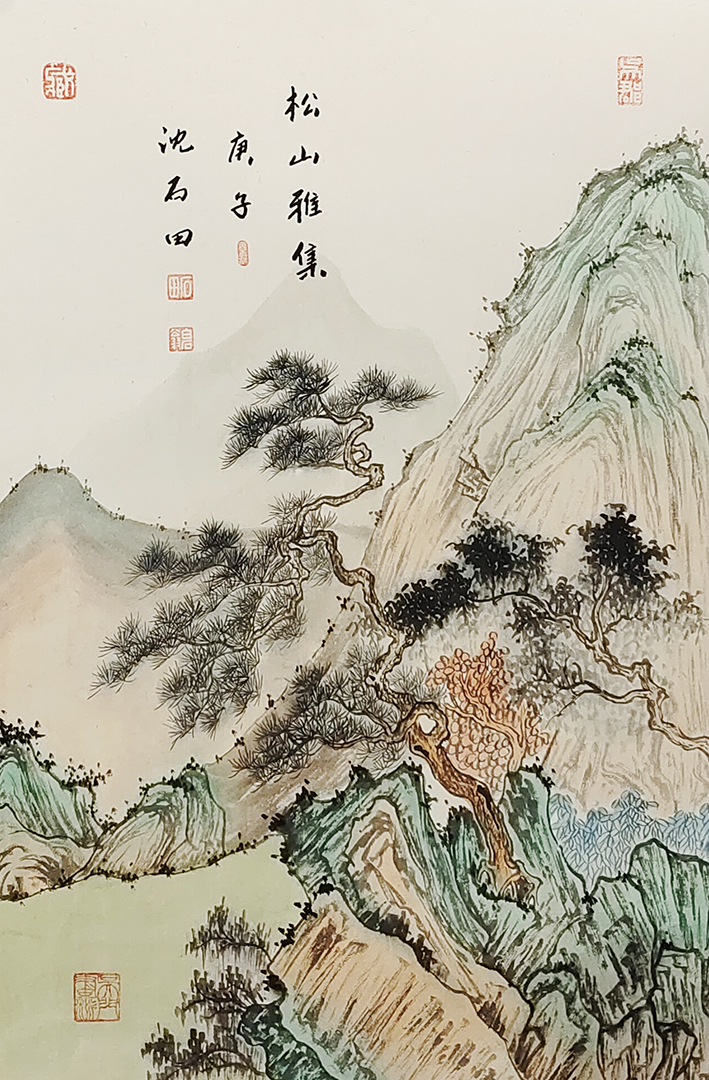 松山雅集
庚子
沈石田